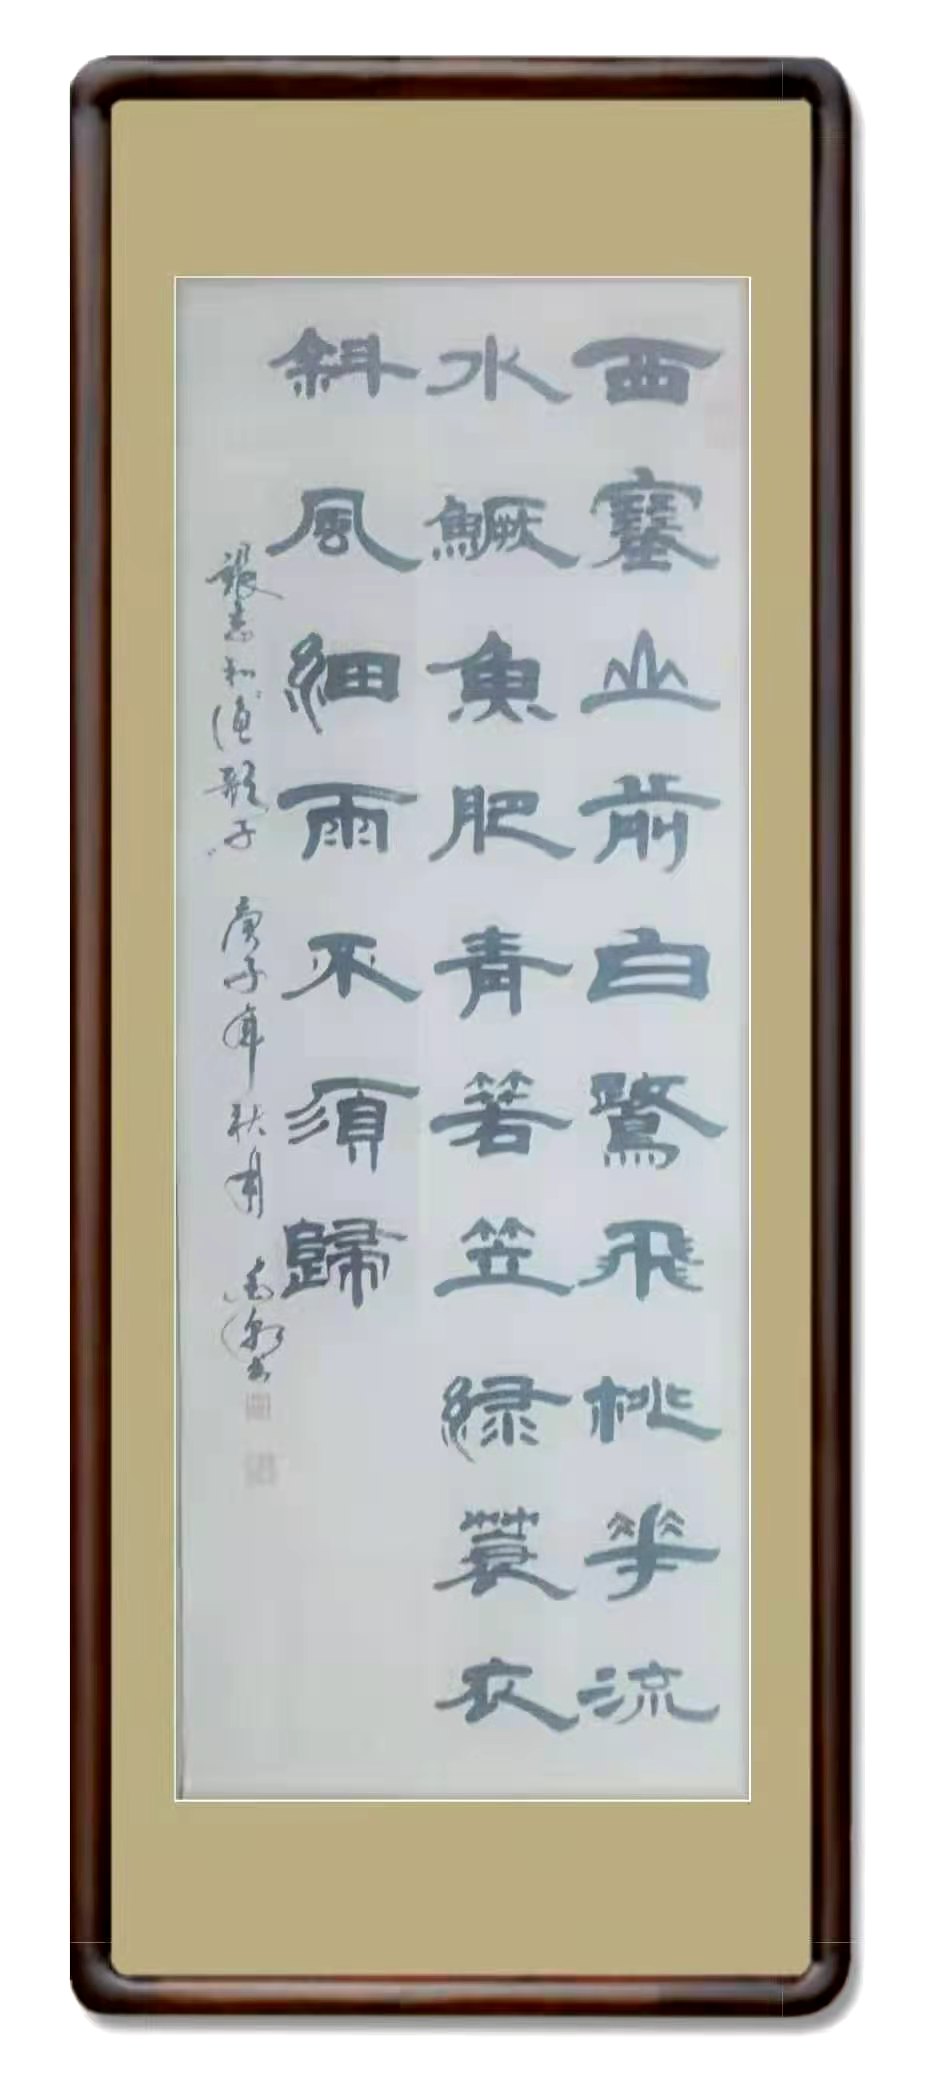 西塞山前白鷺飛桃花流
水鱖魚肥青箬笠綠蓑衣
斜風細雨不須歸
張志和漁歌子 庚子年秋月